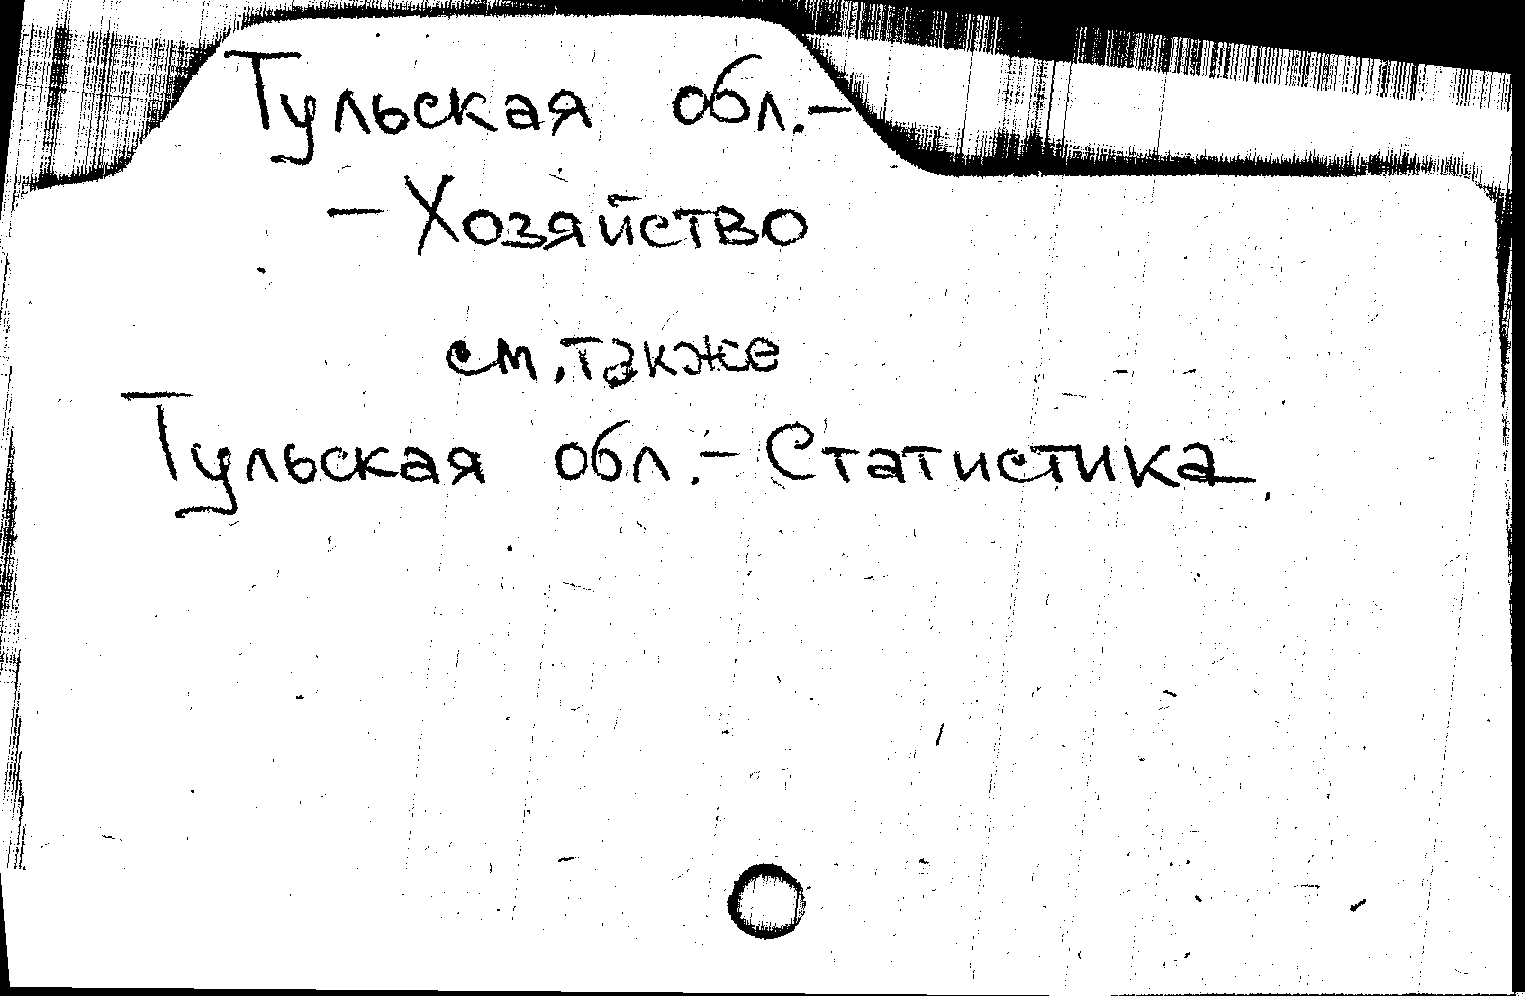 Тульская обл.-
- Хозяйство
см. также
Тульская обл. - Статистика.